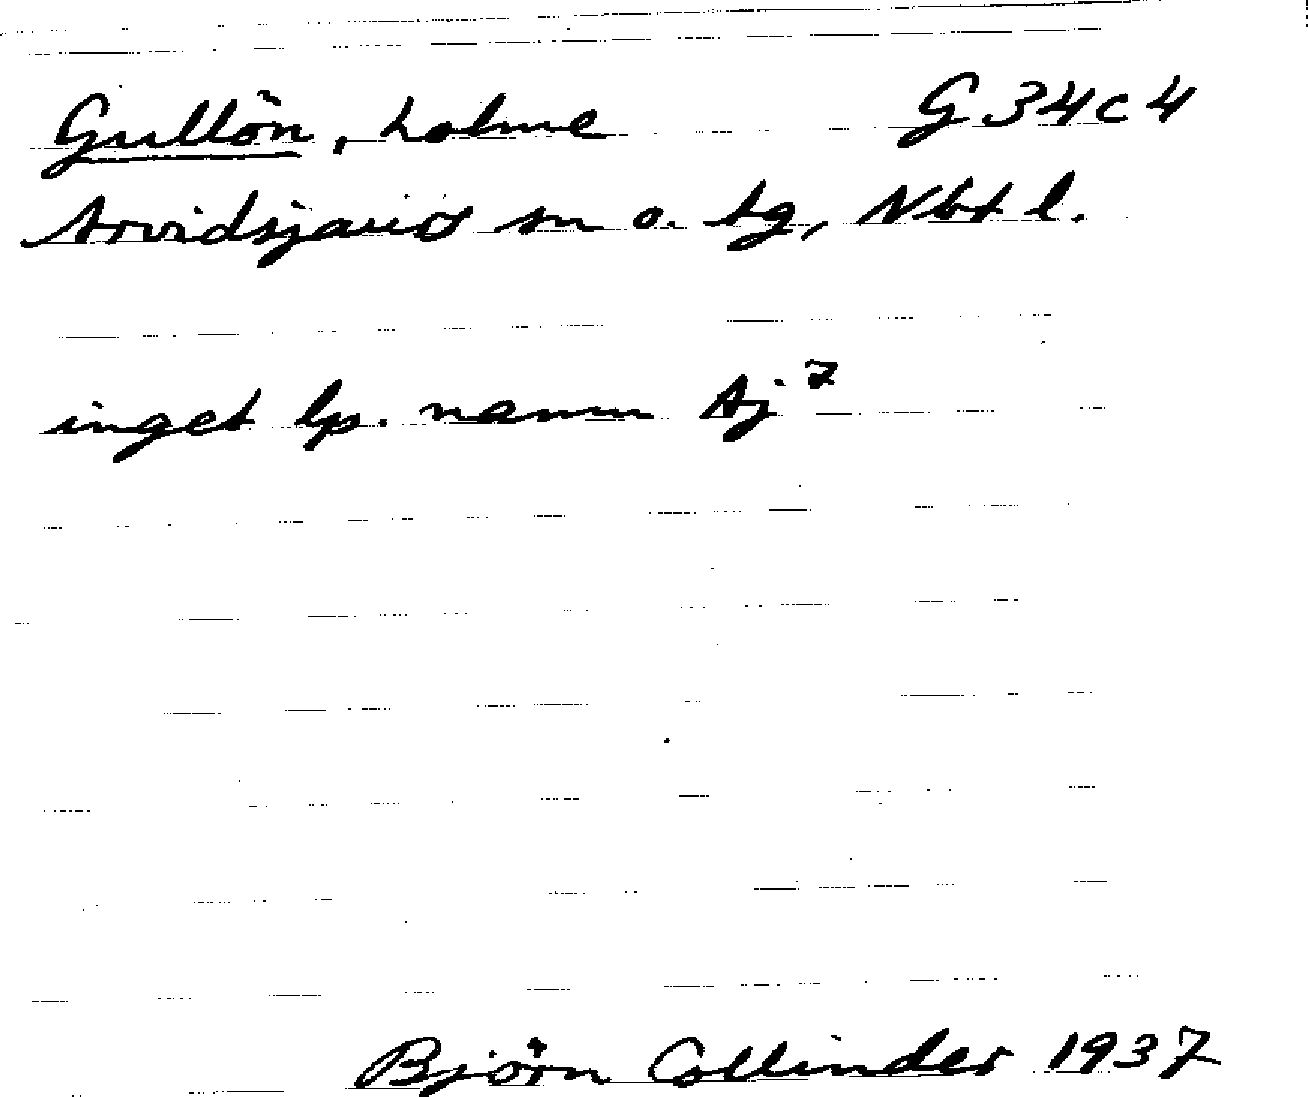 Gullön, holme G34c4
Arvidsjaurs sn o. tg, Nbt l.
inget lp. namn Aj 7
Björn Collinder 1937